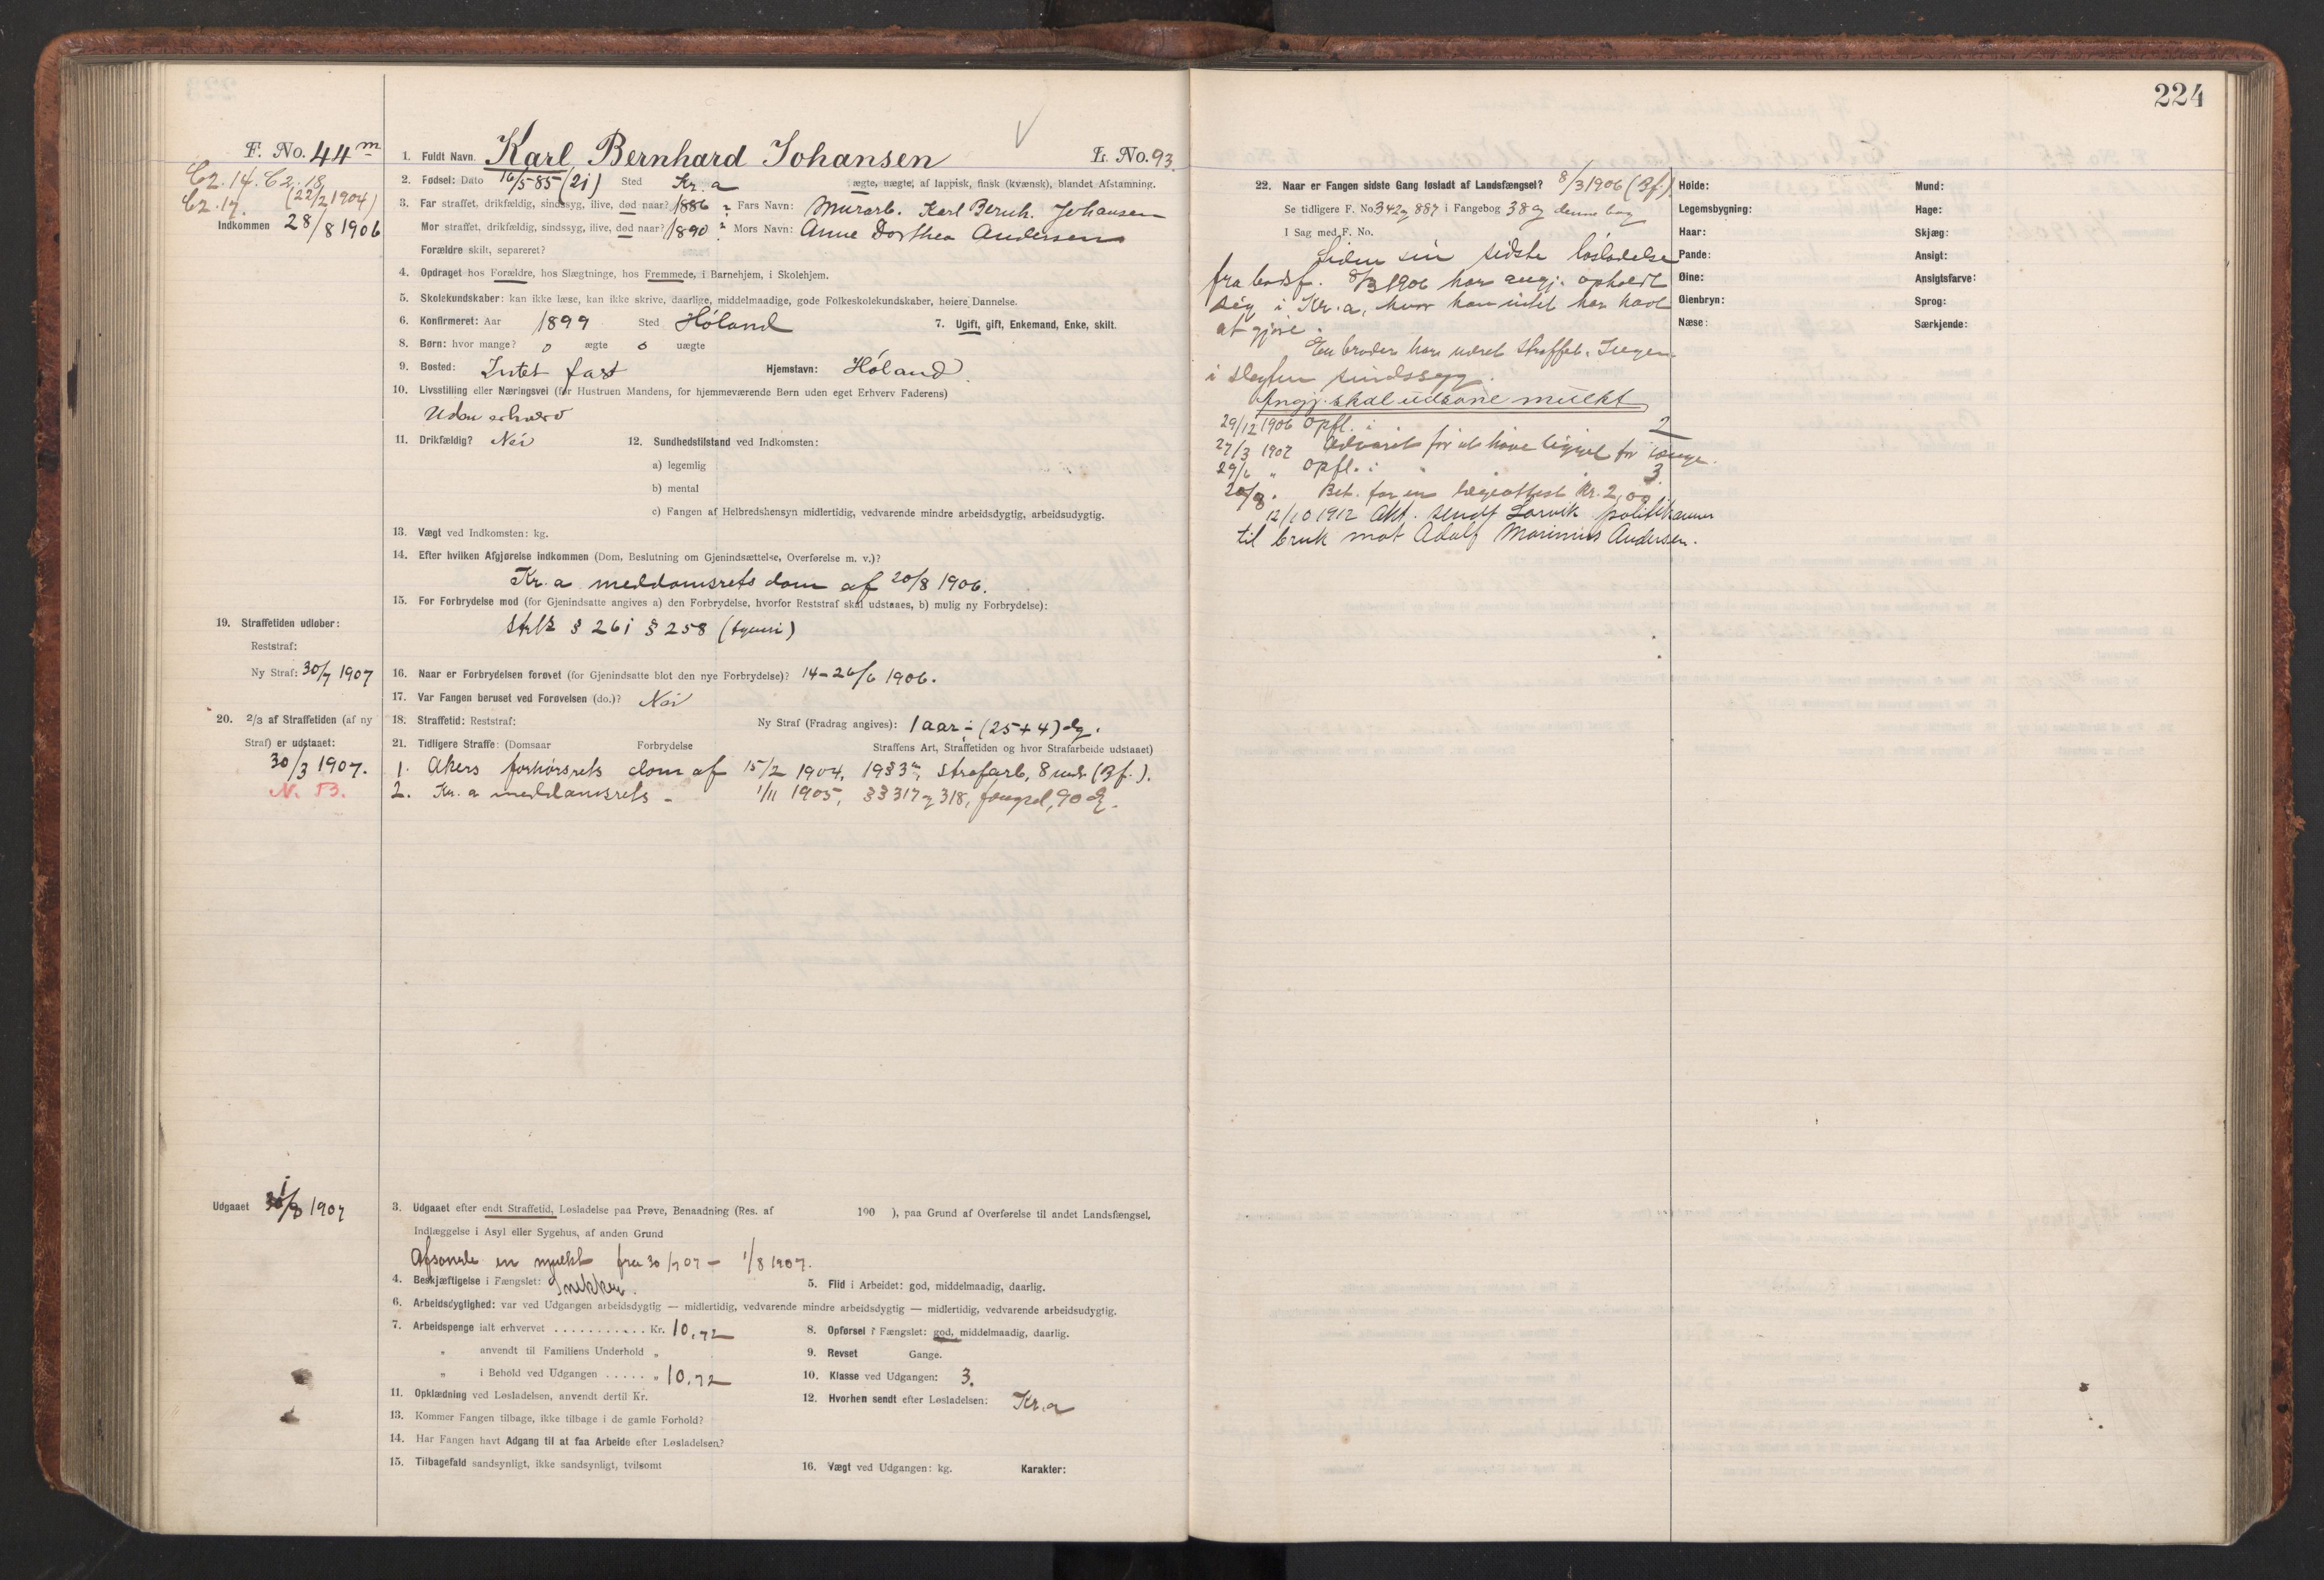 224
F. No. 44 m
C2. 14. C2. 18
C2. 17. (22/2 1904)
Indkommen 28/8 1906
1. Fuldt Navn. Karl Bernhard Johansen L. No. 93.
2. Fødsel: Dato 16/5 85 (21) Sted Kr.a ægte, uægte, af lappisk, finsk (kvænsk), blandet Afstamning.
3. Far straffet, drikfældig, sindssyg, ilive, død naar? 1886 Fars Navn: Murarb. Karl Bernh. Johansen
Mor straffet, drikfældig, sindssyg, ilive, død naar? 1890 Mors Navn: Anne Dorthea Andersen
Forældre skilt, separeret?
4. Opdraget hos Forældre, hos Slægtninge, hos Fremmede, i Barnehjem, i Skolehjem.
5. Skolekundskaber: kan ikke læse, kan ikke skrive, daarlige, middelmaadige, gode Folkeskolekundskaber, høiere Dannelse.
6. Konfirmeret: Aar 1899 Sted Høland 7. Ugift, gift, Enkemand, Enke, skilt.
8. Børn: hvor mange? 0 ægte 0 uægte
9. Bosted: Intet fast Hjemstavn: Høland
10. Livsstilling eller Næringsvei (før Hustruen Mandens, for hjemmeværende Børn uden eget Erhverv Faderens)
Uden erhverv
11. Drikfældig? Nei 12. Sundhedstilstand ved Indkomsten:
a) legemlig
b) mental
c) Fangen af Helbredshensyn midlertidig, vedvarende mindre arbeidsdygtig, arbeidsudygtig.
13. Vægt ved Indkomsten: kg.
14. Efter hvilken Afgjørelse indkommen (Dom, Beslutning om Gjenindsættelse, Overførelse m. v.)?
Kr.a meddomsrets dom af 20/8 1906.
15. For Forbrydelse mod (for Gjenindsatte angives a) den Forbrydelse, hvorfor Reststraf skal udstaaes, b) mulig ny Forbrydelse):
Strfl. § 261 § 258 (tyveri)
19. Straffetiden udløber:
Reststraf:
Ny Straf: 30/7 1907
16. Naar er Forbrydelsen forøvet (for Gjenindsatte blot den nye Forbrydelse)? 14-26/6 1906.
17. Var Fangen beruset ved Forøvelsen (do.)? Nei
20. 2/3 af Straffetiden (af ny Straf) er udstaaet:
30/3 1907.
N. 53.
18. Straffetid: Reststraf: Ny Straf (Fradrag angives): 1 aar ÷ (25+4) dg.
21. Tidligere Straffe: (Domsaar Forbrydelse Straffens Art, Straffetiden og hvor Strafarbeide udstaaet)
1. Akers forhørsrets dom af 15/2 1904, 19 § 3, strafarb, 8 mdr (Bf.).
2. Kr.a meddomsrets - 1/11 1905, §§ 317 og 318, fængsel, 90 dg.
Udgaaet 1/8 1907
3. Udgaaet efter endt Straffetid, Løsladelse paa Prøve, Benaadning (Res. af 190 ), paa Grund af Overførelse til andet Landsfængsel,
Indlæggelse i Asyl eller Sygehus, af anden Grund
Afsonede en mulkt fra 30/7 07 - 1/8 1907.
4. Beskjæftigelse i Fængslet: Snekker. 5. Flid i Arbeidet: god, middelmaadig, daarlig.
6. Arbeidsdygtighed: var ved Udgangen arbeidsdygtig — midlertidig, vedvarende mindre arbeidsdygtig — midlertidig, vedvarende arbeidsudygtig.
7. Arbeidspenge ialt erhvervet . . . . . . . . . . . Kr. 10,72 8. Opførsel i Fængslet: god, middelmaadig, daarlig.
" anvendt til Familiens Underhold " 9. Revset Gange.
" i Behold ved Udgangen . . . . . " 10,72 10. Klasse ved Udgangen: 3.
11. Opklædning ved Løsladelsen, anvendt dertil Kr. 12. Hvorhen sendt efter Løsladelsen: Kr.a
13. Kommer Fangen tilbage, ikke tilbage i de gamle Forhold?
14. Har Fangen havt Adgang til at faa Arbeide efter Løsladelsen?
15. Tilbagefald sandsynligt, ikke sandsynligt, tvilsomt 16. Vægt ved Udgangen: kg. Karakter:
22. Naar er Fangen sidste Gang løsladt af Landsfængsel? 8/3 1906 (Bf.)
Se tidligere F. No. 342 og 887 i Fangebog 38 og denne bog
I Sag med F. No.
Siden sin sidste løsladelse
fra bodsf. 8/3 1906 har angj. opholdt
sig i Kr.a, hvor han intet har havt
at gjøre.
En broder har været straffet. Ingen
i slegten sindssyg.
Angj. skal udsone mulkt
29/12 1906 Opfl. i 2
27/3 1907 Advaret for at have ligget for længe.
29/6 " Opfl. i 3.
20/8. Bet. for en lægeattest Kr. 2,00
12/10 1912 Akt. sendt Larvik politikammer
til bruk mot Adolf Marinius Andersen.
Høide: Mund:
Legemsbygning: Hage:
Haar: Skjæg:
Pande: Ansigt:
Øine: Ansigtsfarve:
Øienbryn: Sprog:
Næse: Særkjende: